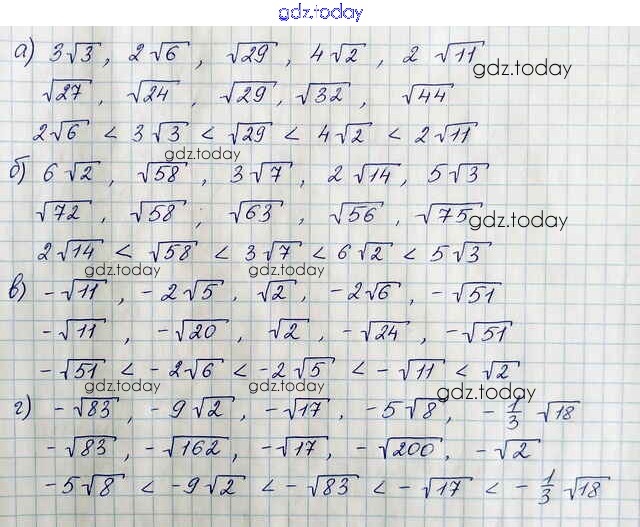 gdz.today
а) 3√3, 2√6, √29, 4√2, 2√11
gdz.today
√27, √24, √29, √32, √44
2√6 < 3√3 < √29 < 4√2 < 2√11
gdz.today
б) 6√2, √58, 3√7, 2√14, 5√3
√72, √58, √63, √56, √75
gdz.today
2√14 < √58 < 3√7 < 6√2 < 5√3
gdz.today gdz.today
в) -√11, -2√5, √2, -2√6, -√51
-√11, -√20, √2, -√24, -√51
-√51 < -2√6 < -2√5 < -√11 < √2
gdz.today gdz.today
г) -√83, -9√2, -√17, -5√8, -1/3 √18
-√83, -√162, -√17, -√200, -√2
gdz.today gdz.today
-5√8 < -9√2 < -√83 < -√17 < -1/3 √18